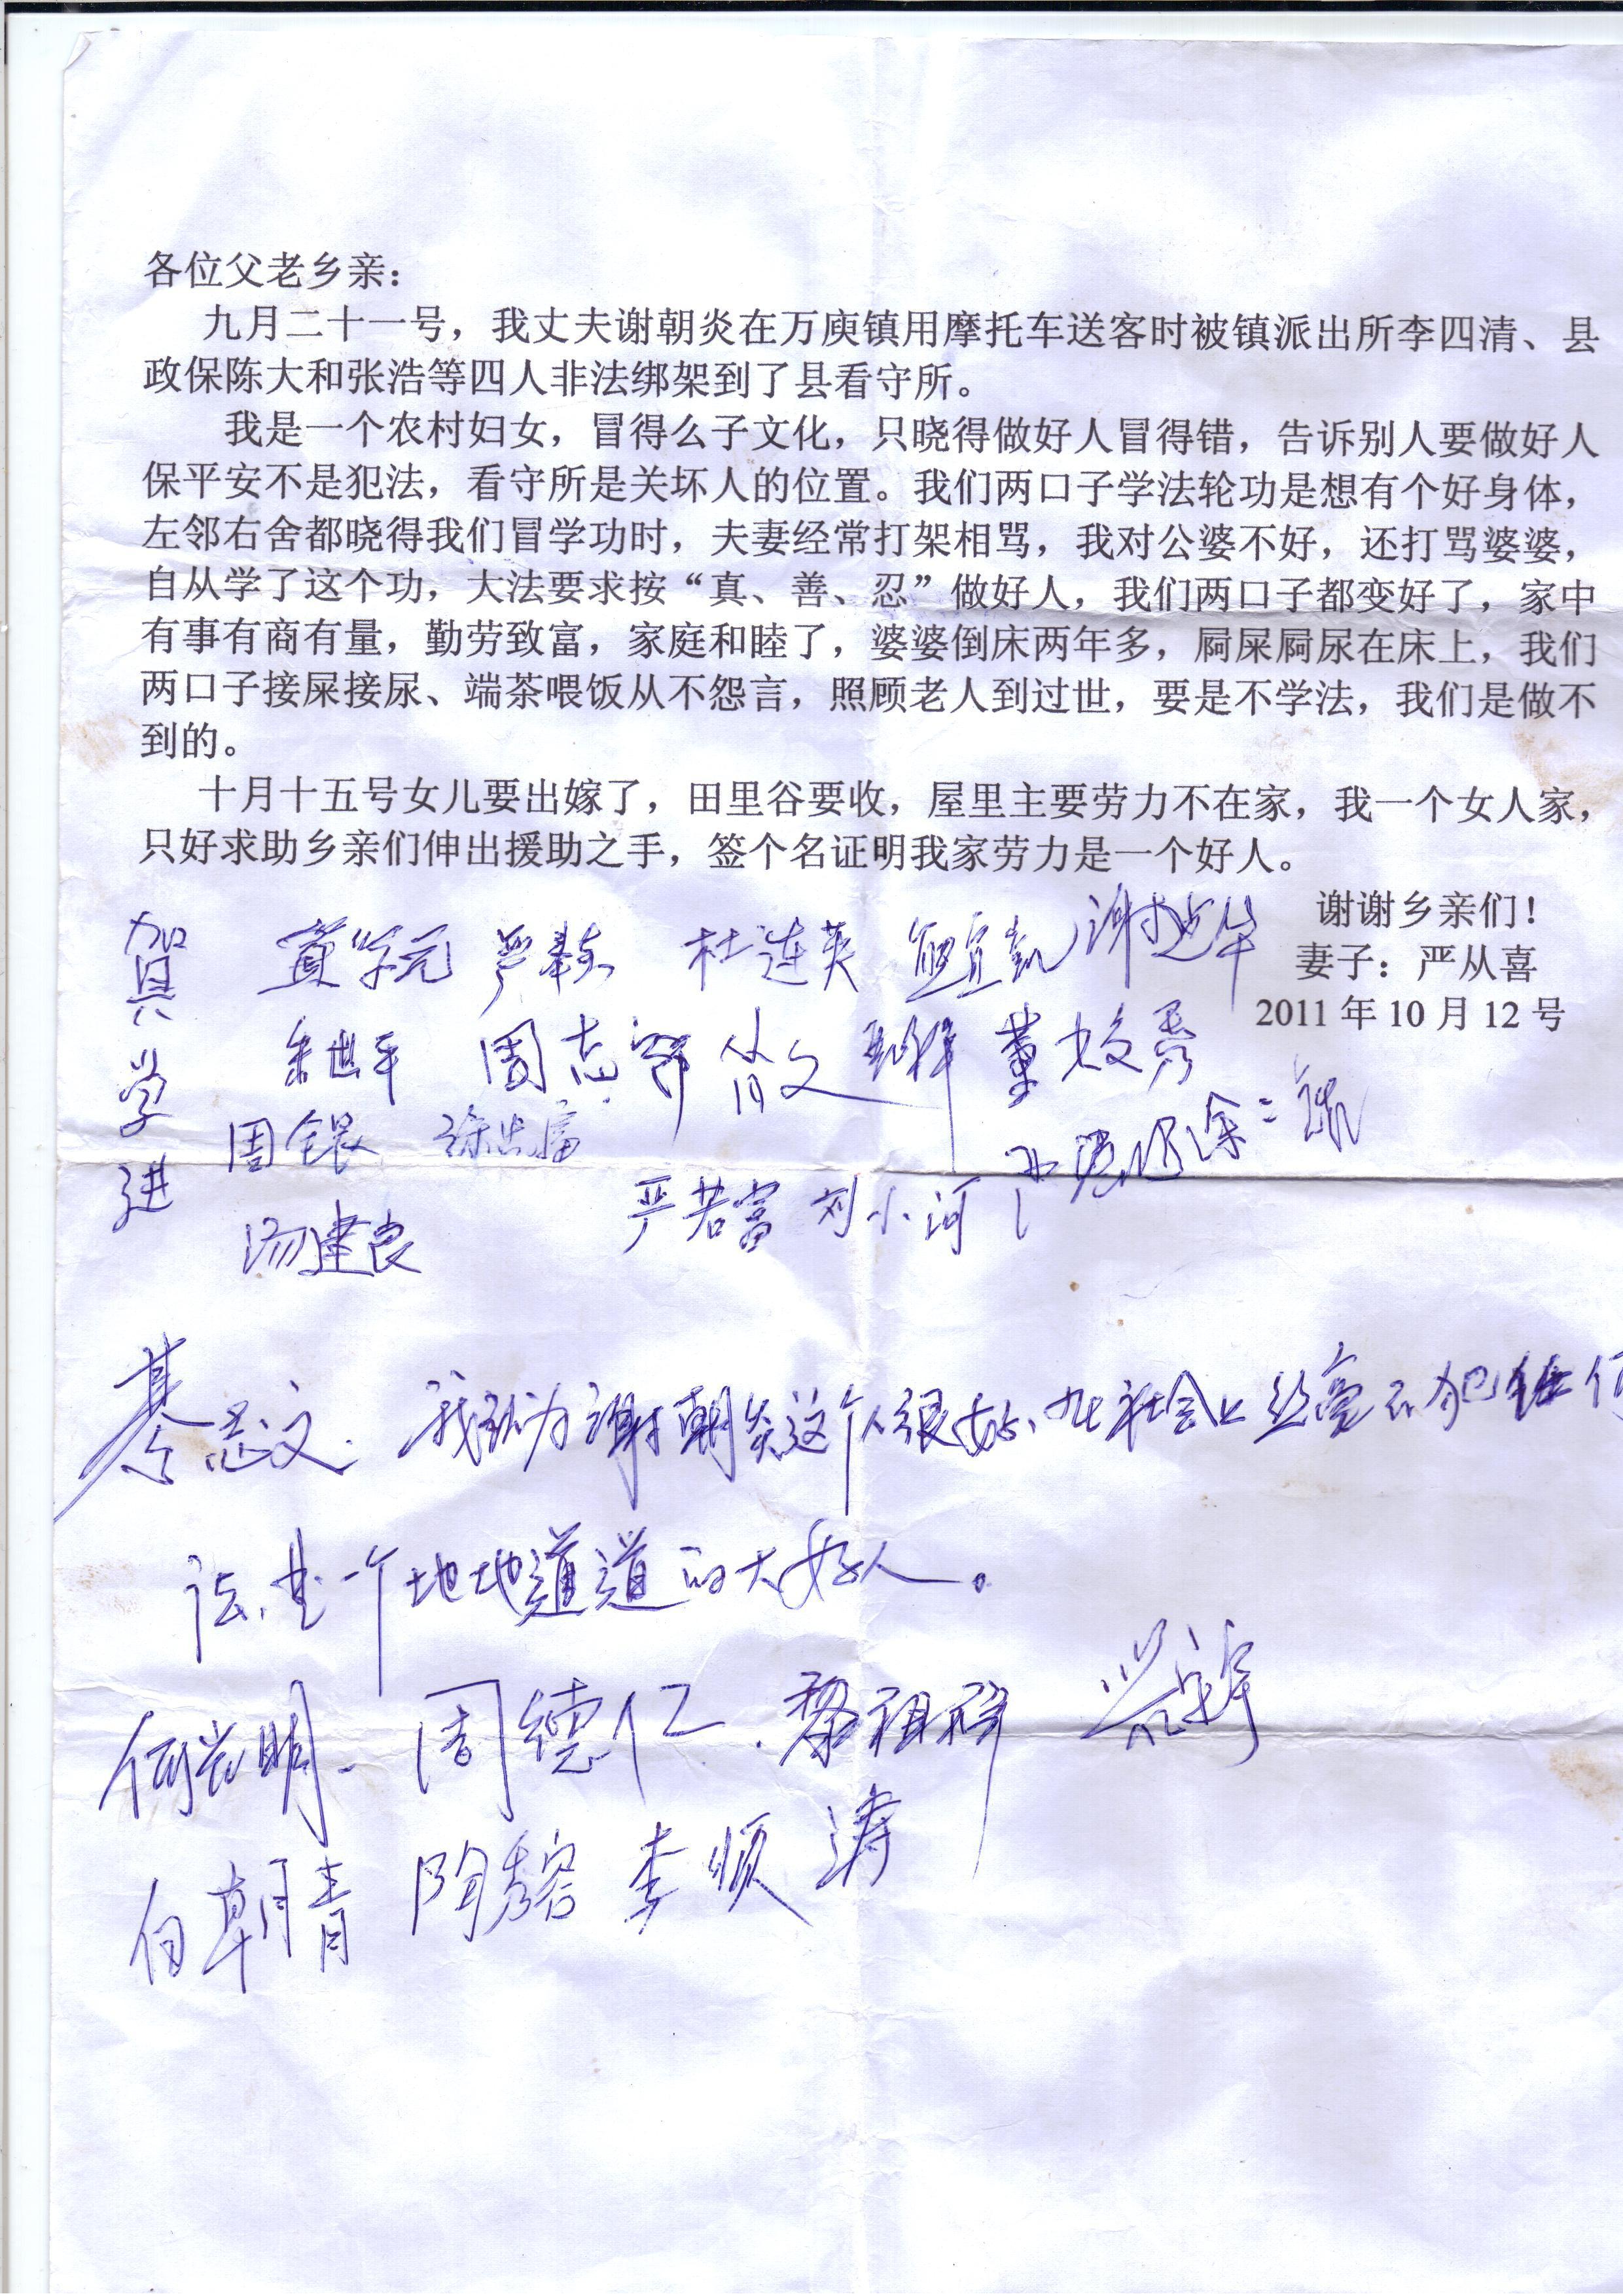 各位父老乡亲：
九月二十一号，我丈夫谢朝炎在万庾镇用摩托车送客时被镇派出所李四清、县
政保陈大和张浩等四人非法绑架到了县看守所。
我是一个农村妇女，冒得么子文化，只晓得做好人冒得错，告诉别人要做好人
保平安不是犯法，看守所是关坏人的位置。我们两口子学法轮功是想有个好身体，
左邻右舍都晓得我们冒学功时，夫妻经常打架相骂，我对公婆不好，还打骂婆婆，
自从学了这个功，大法要求按“真、善、忍”做好人，我们两口子都变好了，家中
有事有商有量，勤劳致富，家庭和睦了，婆婆倒床两年多，屙屎屙尿在床上，我们
两口子接屎接尿、端茶喂饭从不怨言，照顾老人到过世，要是不学法，我们是做不
到的。
十月十五号女儿要出嫁了，田里谷要收，屋里主要劳力不在家，我一个女人家，
只好求助乡亲们伸出援助之手，签个名证明我家劳力是一个好人。
谢谢乡亲们！
妻子：严从喜
2011 年 10 月 12 号
贺学进
杜连英
朱世平 周志
周银
严若富 刘小河
汤建良
綦志文. 我认为谢朝炎这个人很好、在社会上丝毫不犯任何
法，是一个地地道道的大好人。
何岩明. 周德仁. 黎祖祥
白朝青 陶秀容 李顺涛